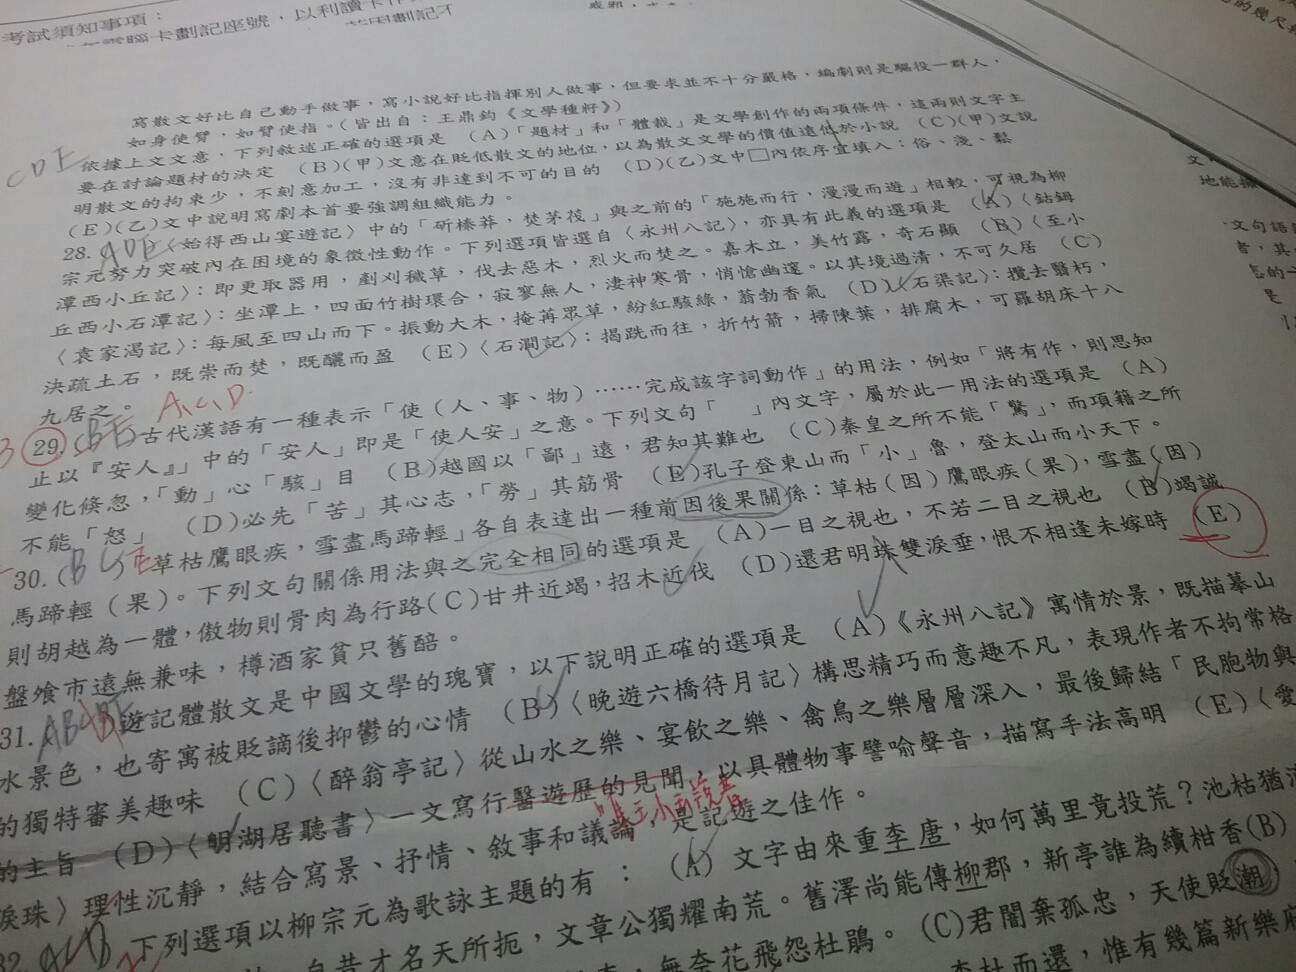 考試須知事項：
寫散文好比自己動手做事，寫小說好比指揮別人做事，但要求並不十分嚴格，編劇則是驅役一群人，
如身使臂，如臂使指。（皆出自：王鼎鈞《文學種籽》）
依據上文文意，下列敘述正確的選項是 (A)「題材」和「體裁」是文學創作的兩項條件，這兩則文字主
要在討論題材的決定 (B)(甲)文意在貶低散文的地位，以為散文文學的價值遠低於小說 (C)(甲)文說
明散文的拘束少，不刻意加工，沒有非達到不可的目的 (D)(乙)文中□內依序宜填入：俗、淺、鬆
(E)(乙)文中說明寫劇本首要強調組織能力。
CDE
28. ADE〈始得西山宴遊記〉中的「斫榛莽，焚茅茷」與之前的「施施而行，漫漫而遊」相較，可視為柳
宗元努力突破內在困境的象徵性動作。下列選項皆選自〈永州八記〉，亦具有此義的選項是 (A)〈鈷鉧
潭西小丘記〉：即更取器用，剷刈穢草，伐去惡木，烈火而焚之。嘉木立，美竹露，奇石顯 (B)〈至小
丘西小石潭記〉：坐潭上，四面竹樹環合，寂寥無人，淒神寒骨，悄愴幽邃。以其境過清，不可久居 (C)
〈袁家渴記〉：每風至四山而下。振動大木，掩苒眾草，紛紅駭綠，蓊勃香氣 (D)〈石渠記〉：攬去翳朽，
決疏土石，既崇而焚，既釃而盈 (E)〈石澗記〉：揭跣而往，折竹箭，掃陳葉，排腐木，可羅胡床十八
九居之。
A,C,D
29. (BE)古代漢語有一種表示「使（人、事、物）……完成該字詞動作」的用法，例如「將有作，則思知
止以『安人』」中的「安人」即是「使人安」之意。下列文句「　」內文字，屬於此一用法的選項是 (A)
變化倏忽，「動」心「駭」目 (B)越國以「鄙」遠，君知其難也 (C)秦皇之所不能「驚」，而項籍之所
不能「怒」 (D)必先「苦」其心志，「勞」其筋骨 (E)孔子登東山而「小」魯，登太山而小天下。
30. (BC)E「草枯鷹眼疾，雪盡馬蹄輕」各自表達出一種前因後果關係：草枯（因）鷹眼疾（果），雪盡（因）
馬蹄輕（果）。下列文句關係用法與之完全相同的選項是 (A)一目之視也，不若二目之視也 (B)竭誠
則胡越為一體，傲物則骨肉為行路(C)甘井近竭，招木近伐 (D)還君明珠雙淚垂，恨不相逢未嫁時 (E)
盤飧市遠無兼味，樽酒家貧只舊醅。
31. 遊記體散文是中國文學的瑰寶，以下說明正確的選項是 (A)《永州八記》寓情於景，既描摹山
水景色，也寄寓被貶謫後抑鬱的心情 (B)〈晚遊六橋待月記〉構思精巧而意趣不凡，表現作者不拘常格
的獨特審美趣味 (C)〈醉翁亭記〉從山水之樂、宴飲之樂、禽鳥之樂層層深入，最後歸結「民胞物與
的主旨 (D)〈明湖居聽書〉一文寫行醫遊歷的見聞，以具體物事譬喻聲音，描寫手法高明 (E)〈愛
淚珠〉理性沉靜，結合寫景、抒情、敘事和議論，是記遊之佳作。
32. 下列選項以柳宗元為歌詠主題的有： (A) 文字由來重李唐，如何萬里竟投荒？池枯猶
自昔才名天所扼，文章公獨耀南荒。舊澤尚能傳柳郡，新亭誰為續柑香(B)
無奈花飛怨杜鵑。 (C)君闇棄孤忠，天使貶潮
李杜而還，惟有幾篇新樂府